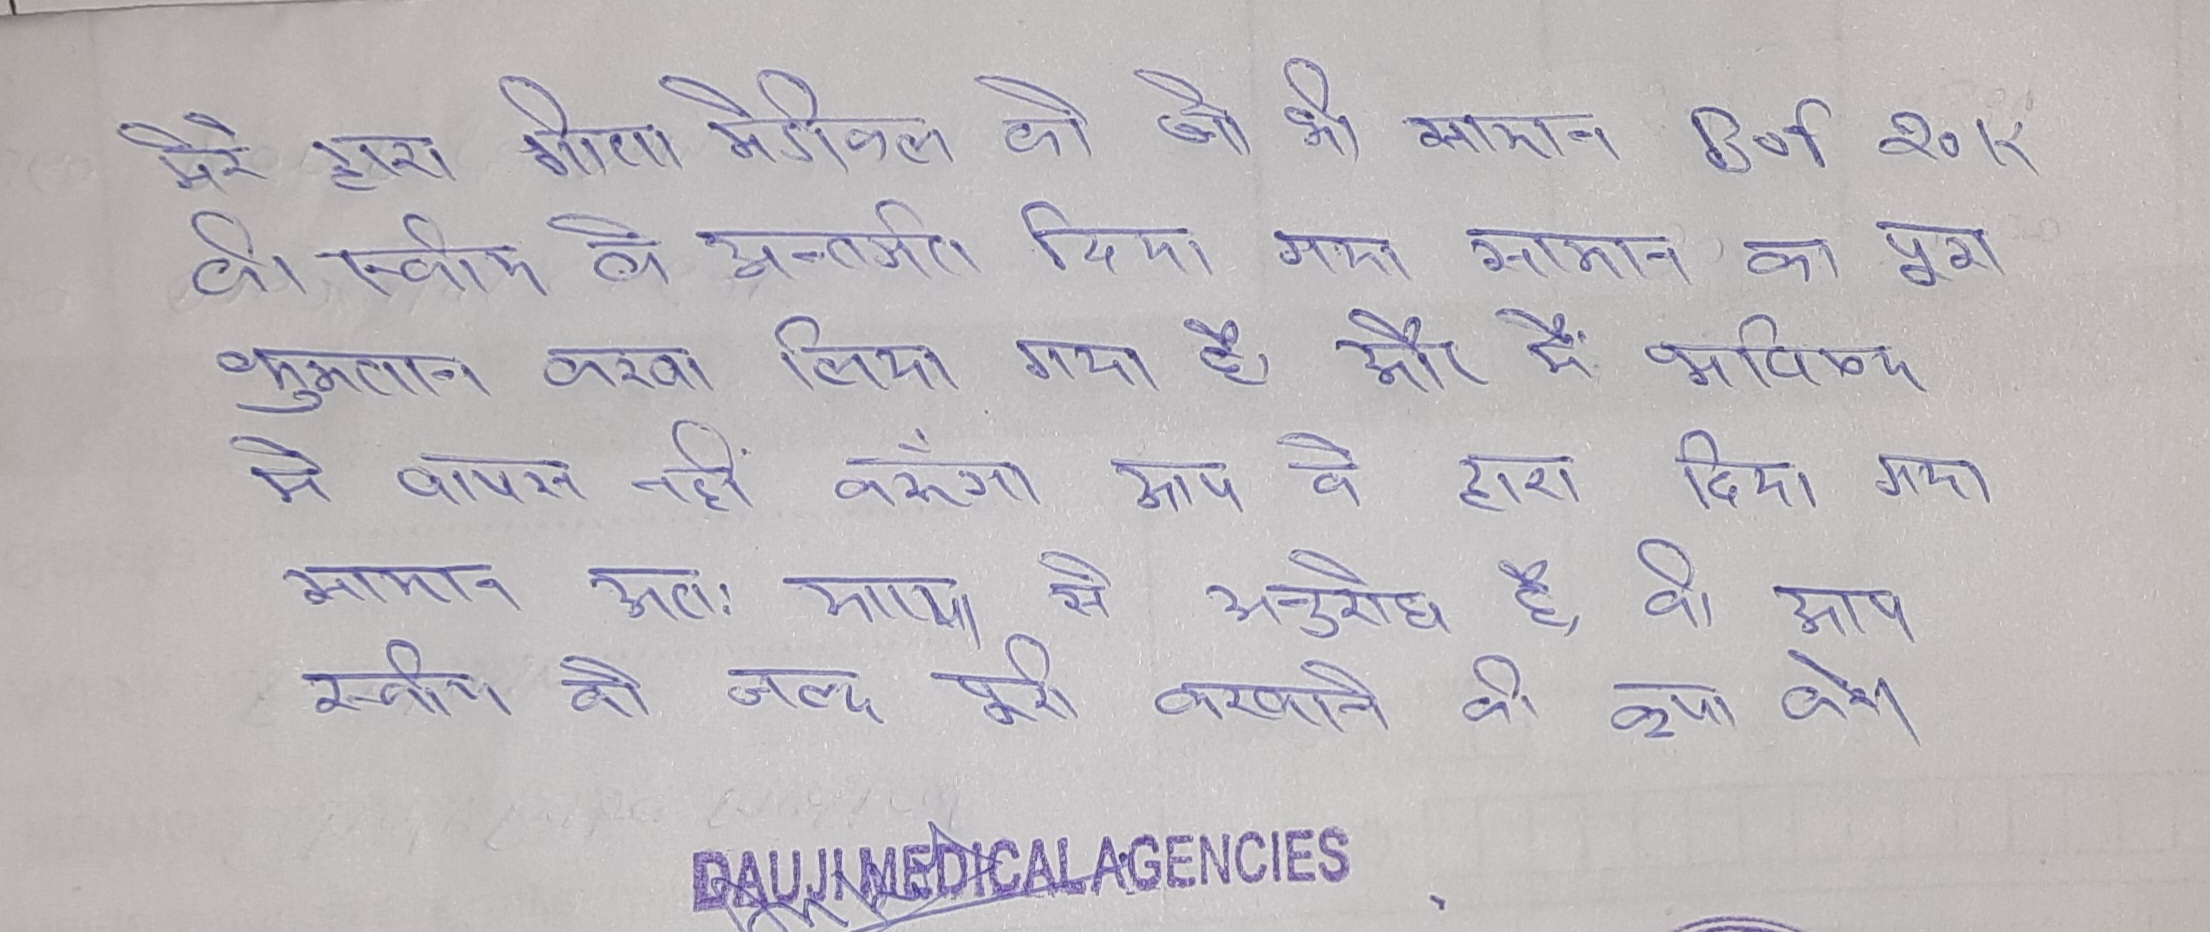 मेरे द्वारा गीता मेडीकल को जो भी सामान Bof 20K
की स्कीम के अन्तर्गत दिया गया सामान का पूरा
भुगतान करवा लिया गया है, और मैं भविष्य
मे वापस नहीं करूँगा आप के द्वारा दिया गया
सामान अतः से अनुरोध है, की आप
स्कीम को जल्द पूरी करवाने की कृपा करे।
DAUJI MEDICAL AGENCIES